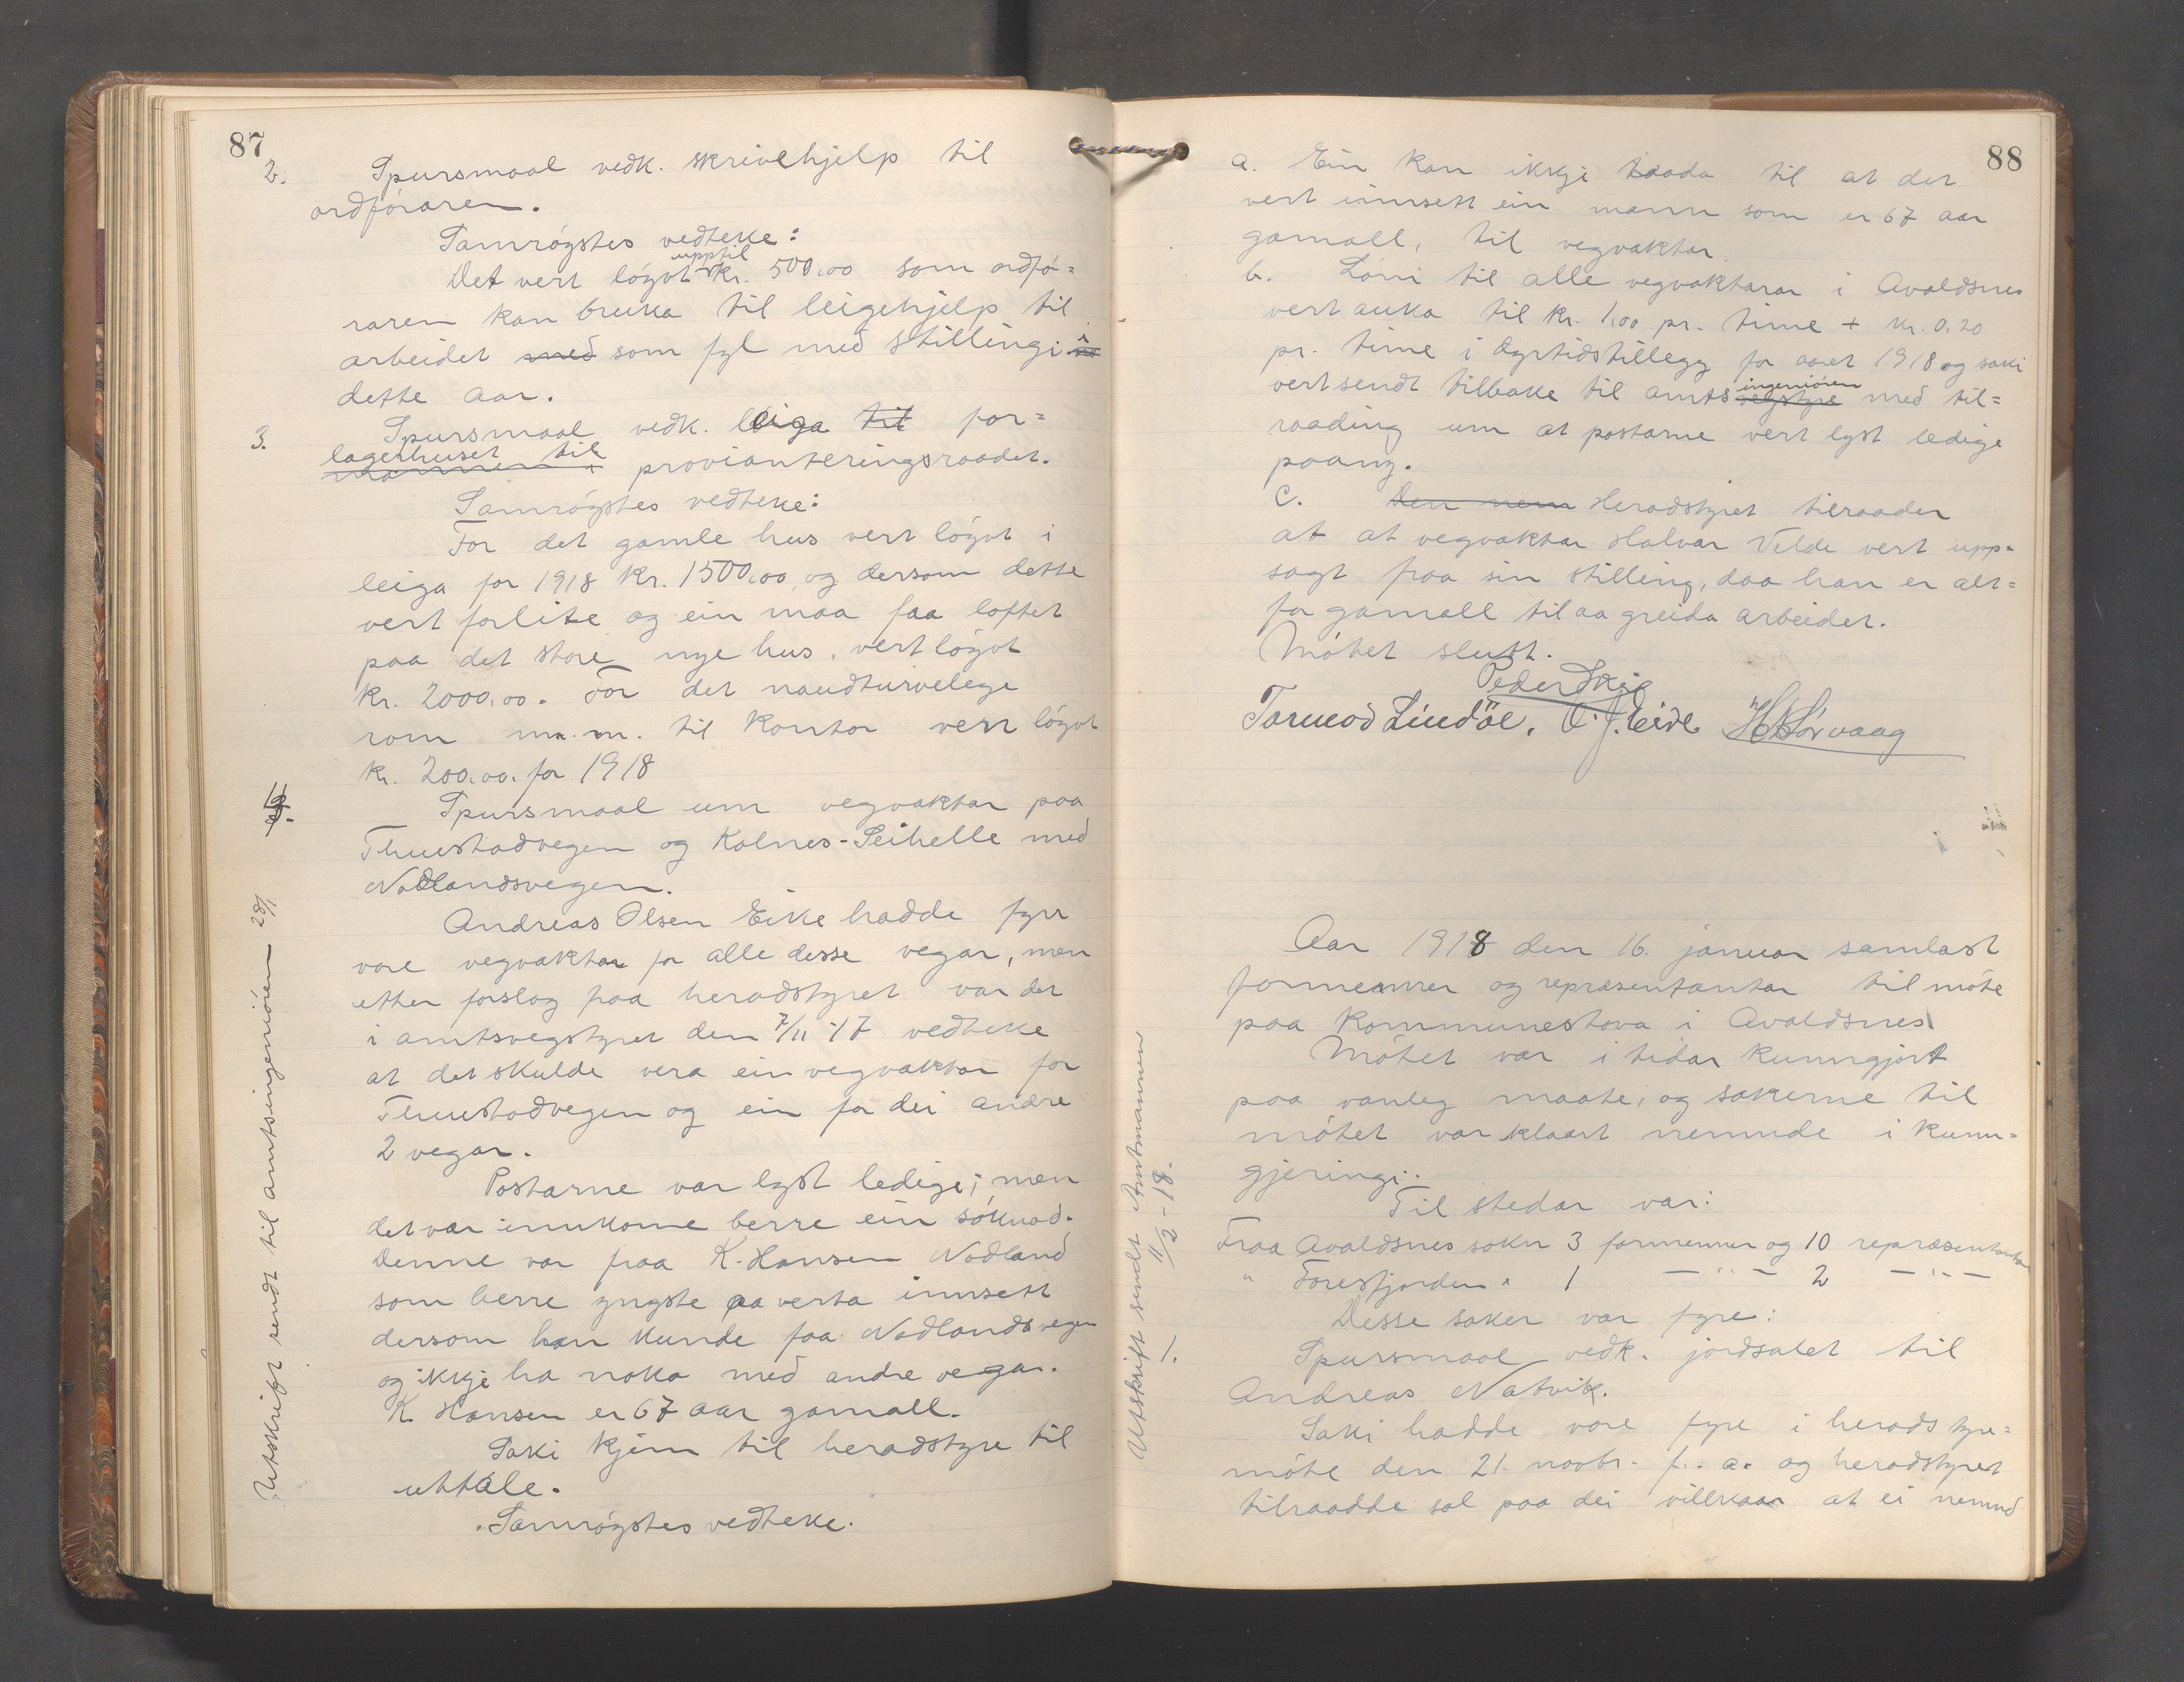 87
2. Spursmaal vedk. skrivehjelp til
ordføraren.
Samrøystes vedteke:
upptil
Det vert løyvt kr. 500,00 som ordfø=
raren kan bruka til leigehjelp til
arbeidet med som fyl med stillingi i
dette aar.
3. Spursmaal vedk. leiga til for=
lagerhuset til
provianteringsraadet.
Samrøystes vedteke:
For det gamle hus vert løyvt i
leiga for 1918 kr. 1500,00, og dersom dette
vert forlite og ein maa faa loftet
paa det store nye hus, vert løyvt
kr. 2000,00. For det naudturvelege
rom m.m. til kontor vert løyvt
kr. 200,00. for 1918
Spursmaal um vegvaktar paa
Thuestadvegen og Kolnes-Seihelle med
Nodlandsvegen.
Andreas Olsen Eike hadde fyrr
vore vegvaktar for alle desse vegar, men
etter forslag fraa heradstyret var det
i amtsvegstyret den 7/11-17 vedteke
at det skulde vera ein vegvaktar for
Thuestadvegen og ein for dei andre
2 vegar.
Postarne var lyst ledige; men
det var innkome berre ein søknad.
Denne var fraa K. Hansen Nodland
som berre yngste aa verta innsett
dersom han kunde faa Nodlandsvegen
og ikkje ha noko med andre vegar.
K. Hansen er 67 aar gamall.
Saki kjem til heradstyre til
uttale.
Samrøystes vedteke.
Utskrift sendt til amtsingeniøren 28/1
88
a. Ein kan ikkje raada til at det
vert innsett ein mann som er 67 aar
gamall, til vegvaktar.
b. Løni til alle vegvaktarar i Avaldsnes
vert auka til kr. 1,00 pr. time + kr. 0,20
pr. time i dyrtidstillegg for aaret 1918 og saki
ingeniøren
vert sendt tilbake til amtsvegstyre med til=
raading um at postarne vert lyst ledige
paany.
c. Den nem Heradstyret tilraader
at at vegvaktar Halvar Velde vert upp=
sagt fraa sin stilling, daa han er alt=
for gamall til aa greida arbeidet.
Møtet slutt.
Peder Skeie
Tormod Lindøe. O. J. Eide H K Sørvaag
Aar 1918 den 16. januar samlast
formenner og repræsentantar til møte
paa kommunestova i Avaldsnes
Møtet var i tidar kunngjort
paa vanleg maate, og sakerne til
møtet var klaart nemnde i kunn=
gjeringi.
Til stedar var:
Fraa Avaldsnes sokn 3 formenner og 10 repræsentantar
" Føresfjorden " 1 — " — 2 — " —
Desse saker var fyre:
1. Spursmaal vedk. jordsalet til
Andreas Natvik.
Saki hadde vore fyre i heradstyre=
møte den 21. novbr. f. a. og heradstyret
tilraadde sal paa dei villkaar at ei nemnd
Utskrift sendt Amtmannen
11/2-18.